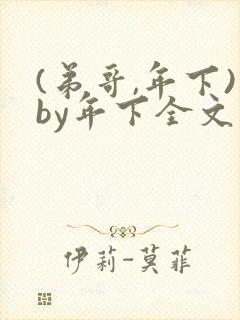 (弟哥,年下)
by年下全文
伊莉-莫菲